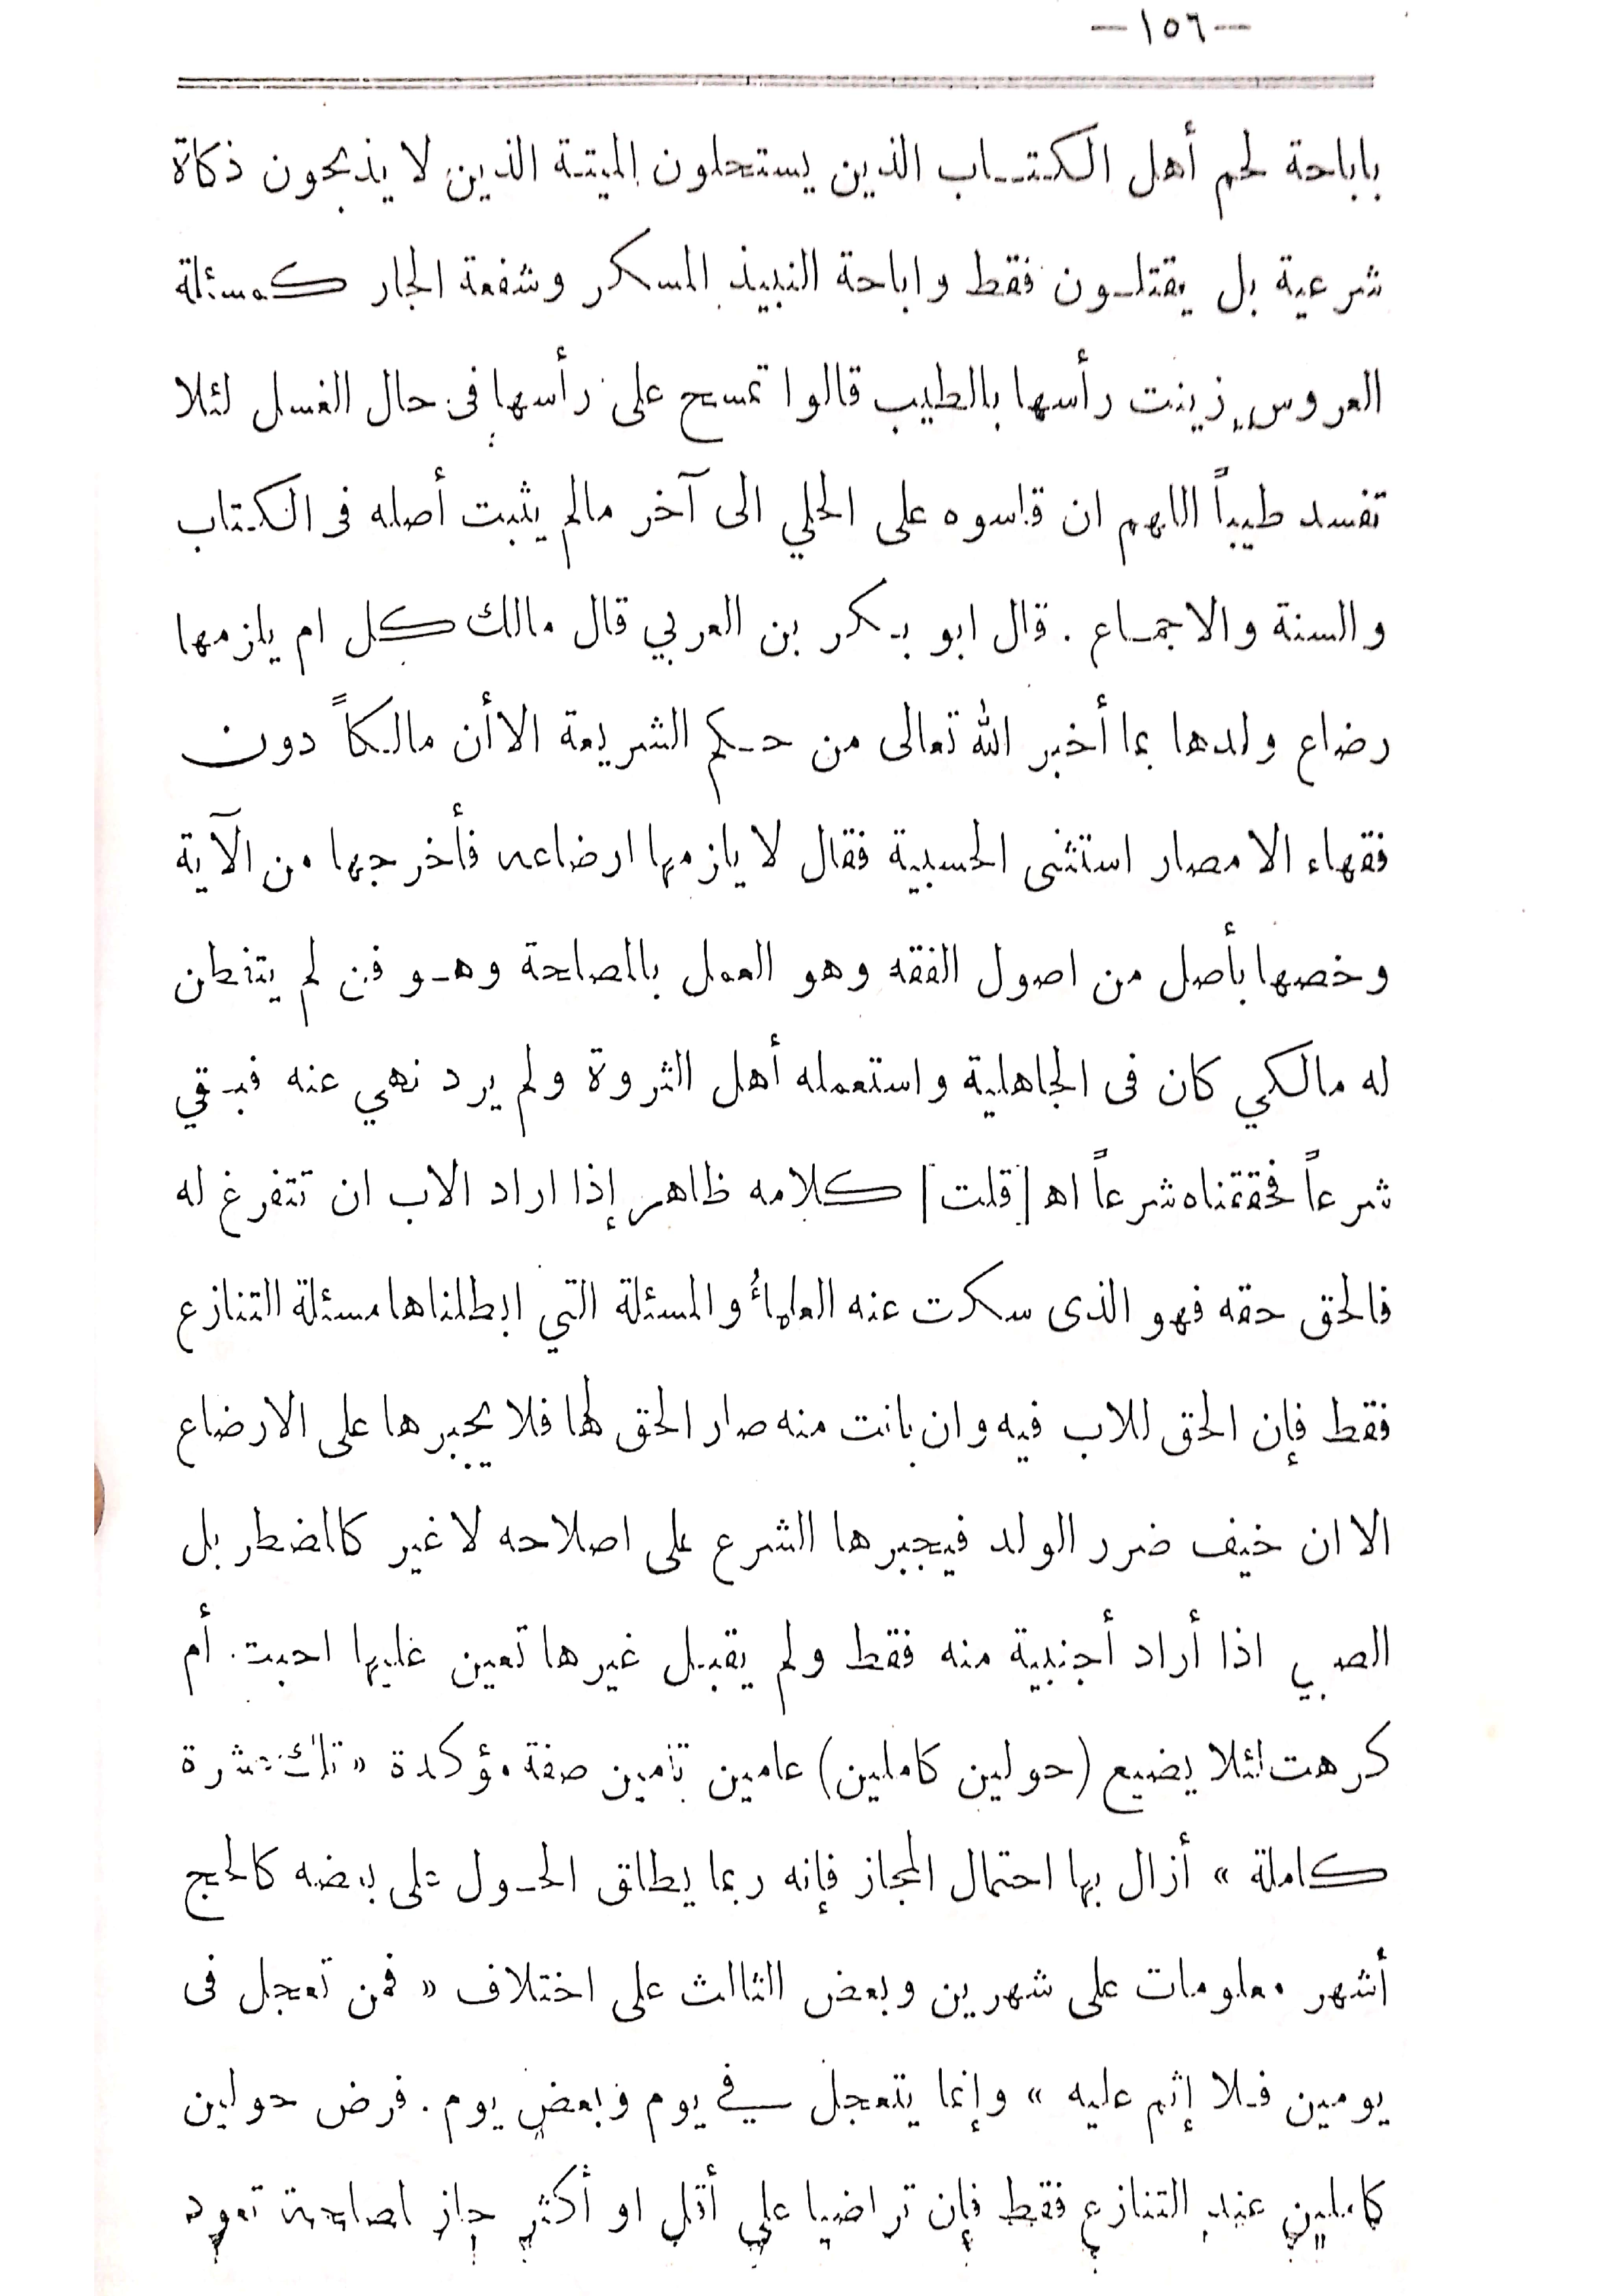 —١٥٦—
باباحة لحم أهل الكتــاب الذين يستحلون الميتة الذين لا يذبحون ذكاة
شرعية بل يقتلـون فقط واباحة النبيذ المسكر وشفعة الجار كمسئلة
العروس زينت رأسها بالطيب قالوا تمسح على رأسها فى حال الغسل لئلا
تفسد طيباً اللهم ان قاسوه على الحلي الى آخر مالم يثبت أصله فى الكتاب
والسنة والاجمـاع . قال ابو بـكر بن العربي قال مالك كل ام يلزمها
رضاع ولدها بما أخبر الله تعالى من حـكم الشريعة الا أن مالـكاً دون
فقهاء الامصار استثنى الحسيبة فقال لا يلزمها ارضاعه فأخرجها من الآية
وخصها بأصل من اصول الفقه وهو العمل بالمصلحة وهـو فن لم يتفطن
له مالكي كان فى الجاهلية واستعمله أهل الثروة ولم يرد نهي عنه فبـقي
شرعاً فحققناه شرعاً اهـ [قلت] كلامه ظاهر إذا اراد الاب ان تتفرغ له
فالحق حقه فهو الذى سكت عنه العلمأُ والمسئلة التي ابطلناها مسئلة التنازع
فقط فإن الحق للاب فيه وان بانت منه صار الحق لها فلا يجبرها على الارضاع
الا ان خيف ضرر الولد فيجبرها الشرع على اصلاحه لا غير كالمضطر بل
الصبي اذا أراد أجنبية منه فقط ولم يقبـل غيرها تعين عليها احبت أم
كرهت لئلا يضيع (حولين كاملين) عامين تامين صفة مؤكدة « تلك عشرة
كاملة » أزال بها احتمال المجاز فإنه ربما يطلق الحـول على بعضه كالحج
أشهر معلومات على شهرين وبعض الثالث على اختلاف « فمن تعجل فى
يومين فـلا إثم عليه » وإنما يتعجل في يوم وبعض يوم . فرض حولين
كاملين عند التنازع فقط فإن تراضيا على أقل او أكثر جاز لمصلحة تعود